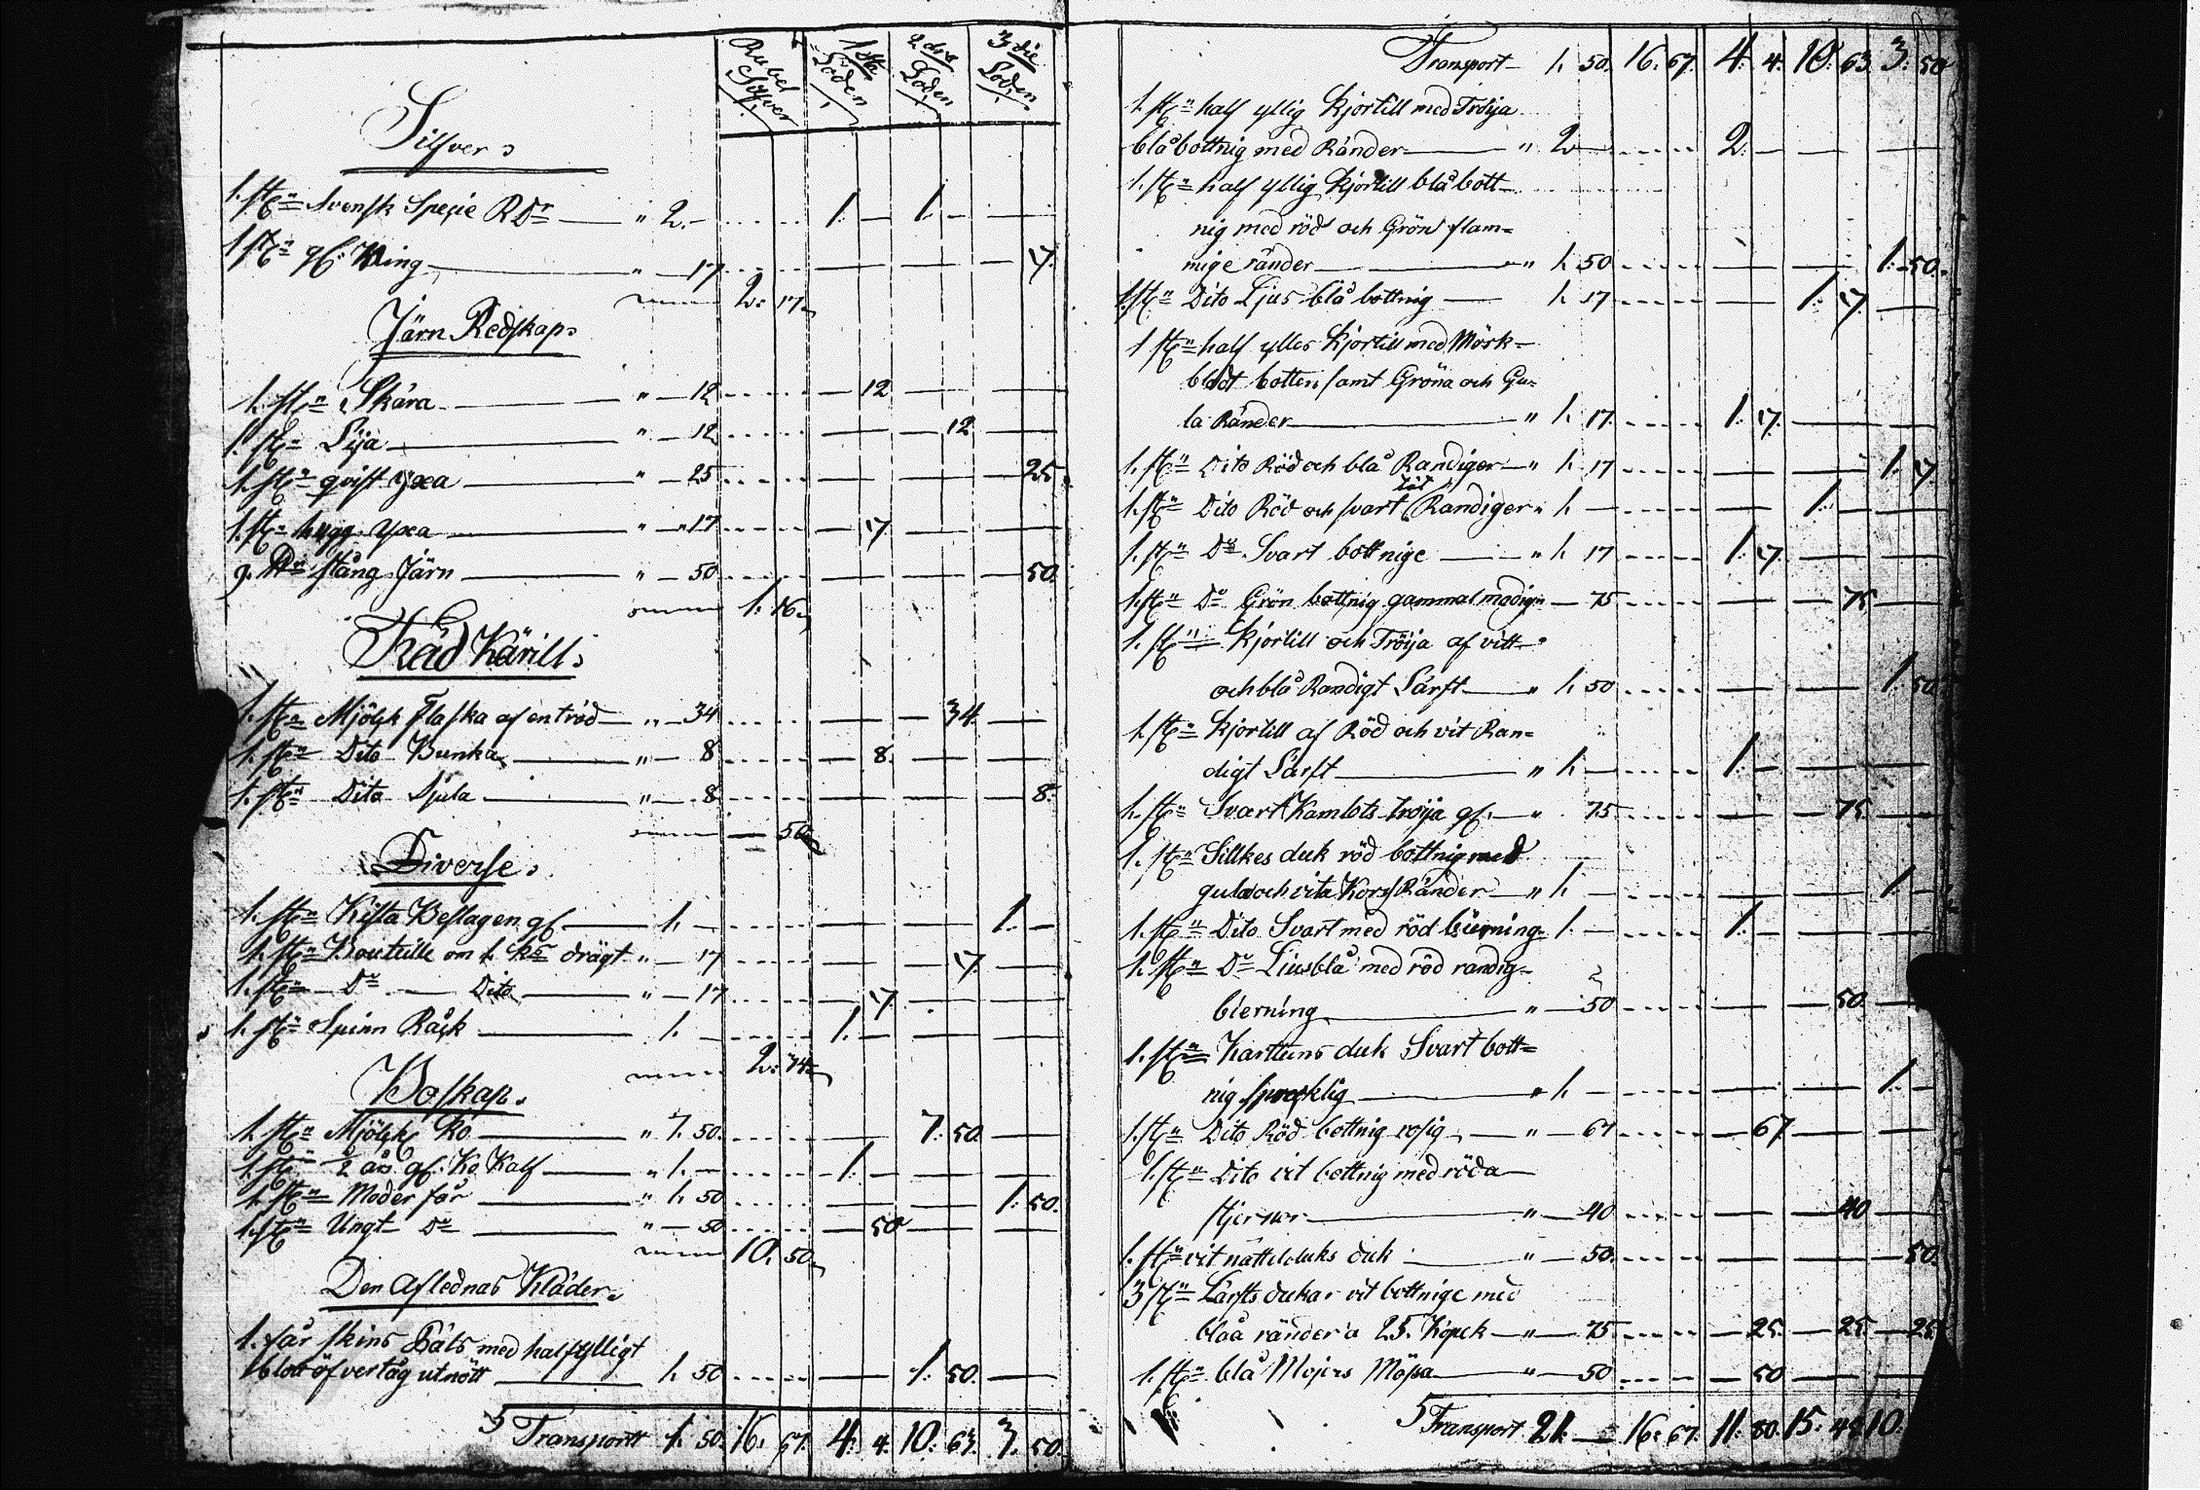 Rubel Silfver 1sta Loden 2dra Loden 3die Loden
Silfver
1. st. Svensk Specie R Dr " 2. – 1. – 1. –
1 st. gl. Ring " – 17 17.
2. 17.
Järn Redskap
1. st. Skära " – 12 12
1. st. Lija " – 12 12
1. st. qvist yxa " – 25 25
1. st. hugg yxa " – 17 17.
9. stång Järn " – 50 50.
1. 16.
Träd Kärill
1. st. Mjölk Flaska af en träd " – 34 34.
1. st. Dito Bunka " – 8 8.
1. st. Dito " – 8 8.
– 50
Diverse
1. st. Kista Beslagen gl. 1. – 1. –
1. st. Bouteille om 1. drägt " – 17 17.
1. st. Do Dito " – 17 17.
1. st. Spinn Råck 1. – 1. –
2. 34.
Boskap
1. st. Mjölk Ko " 7. 50. 7. 50.
1. st. ½ års gl. Ko Kalf " 1. – 1. –
1. st. Moder får " 1. 50 1. 50.
1. st. Ungt Do " – 50 50
10. 50.
Den Aflednas Kläder
1. får skins Päls med halfylligt
blått öfvertåg utnött 1. 50 1. 50.
Transport 1. 50. 16. 67. 4. 4. 10. 63. 3. 50.
Transport 1. 50. 16. 67. 4. 4. 10. 63. 3. 50
1. st. half yllig Kjortill med Tröija
blåbottnig med Ränder " 2 – 2. –
1. st. half yllig Kjortill blåbott-
nig med röd och Grön flam=
mige ränder " 1. 50 1. 50.
1. st. Dito Ljus blå bottnig 1. 17 1. 17.
1 st. half ylles Kjortill med Mörk-
blåt botten samt Gröna och Gu=
la Ränder " 1. 17. 1. 17.
1. st. Dito Röd och blå Randiger " 1. 17 1. 17.
1. st. Dito Röd och svart Randiger " 1. – 1. –
1. st. Do Svart bottnige " 1. 17 1. 17.
1. st. Do Grön bottnig gammalmodig " – 75 75
1. st. Kjortill och Tröija af vitt
och blå Randigt Lärft " 1. 50 1. 50.
1. st. Kjortill af Röd och vit Ran=
digt Lärft " 1. – 1. –
1. st. Svart Kamlots tröija gl. " 75 75.
1. st. Sillkes duk röd bottnig med
gula och vita Kors Ränder " 1. – 1. –
1. st. Dito Svart med röd 1. – 1. –
1. st. Do Liusblå med röd randig
bierning " – 50 50.
1. st. Kartuns duk Svart bott=
nig sprecklig " 1. – 1. –
1. st. Dito Röd bottnig rosig " – 67 67.
1. st. Dito vit bottnig med röda
stjernor " – 40 40
1. st. vit nätteldduks duk " – 50. 50.
3 st. Lärfts dukar vit bottnige med
blåa ränder a 25. Kopek " – 75. 25. 25. 25
1. st. blå Mössa " – 50 50
Transport 21. – 16. 67. 11. 80. 15. 10.